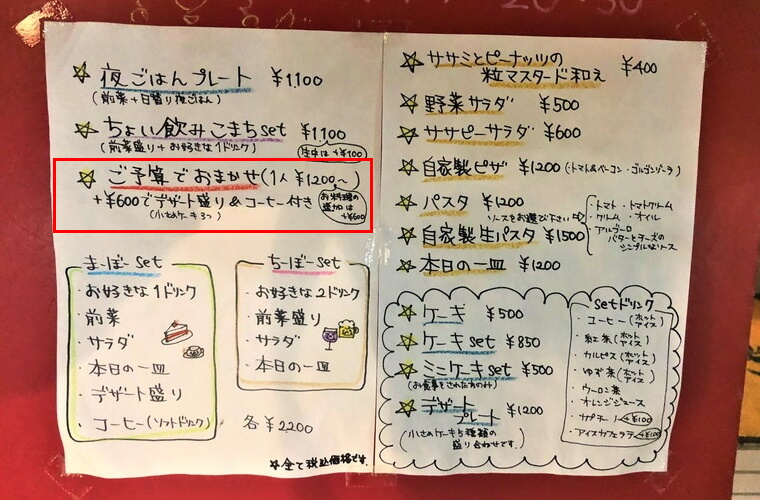 夜ごはんプレート ¥1,100
(前菜+日替り夜ごはん)
ちょい飲みこまちset ¥1,100
(前菜盛り+お好きな1ドリンク)
ご予算でおまかせ(1人¥1200〜)
+¥600でデザート盛り&コーヒー付き
(小さめケーキ3つ)
お料理の
追加は
+¥600
まーぼーset
・お好きな1ドリンク
・前菜
・サラダ
・本日の一皿
・デザート盛り
・コーヒー(ソフトドリンク)
ちーぼーset
・お好きな2ドリンク
・前菜盛り
・サラダ
・本日の一皿
各¥2,200
☆全て税込価格です。
ササミとピーナッツの
粒マスタード和え ¥400
野菜サラダ ¥500
ササピーサラダ ¥600
自家製ピザ ¥1200(・トマト&ベーコン・ゴルゴンゾーラ)
パスタ ¥1200
ソースをお選び下さい
自家製生パスタ ¥1500
・トマト・トマトクリーム
・クリーム・オイル
・アルブーロ
バターとチーズの
シンプルなソース
本日の一皿 ¥1200
ケーキ ¥500
ケーキset ¥850
ミニケーキset ¥500
(お食事をされた方のみ)
デザート
プレート ¥1200
(小さめケーキ5種類の
盛り合わせです。)
setドリンク
・コーヒー(ホット アイス)
・紅茶(ホット アイス)
・カルピス(ホット アイス)
・ゆず茶(ホット アイス)
・ウーロン茶
・オレンジジュース
・カプチーノ+¥100
・アイスカフェラテ+¥100